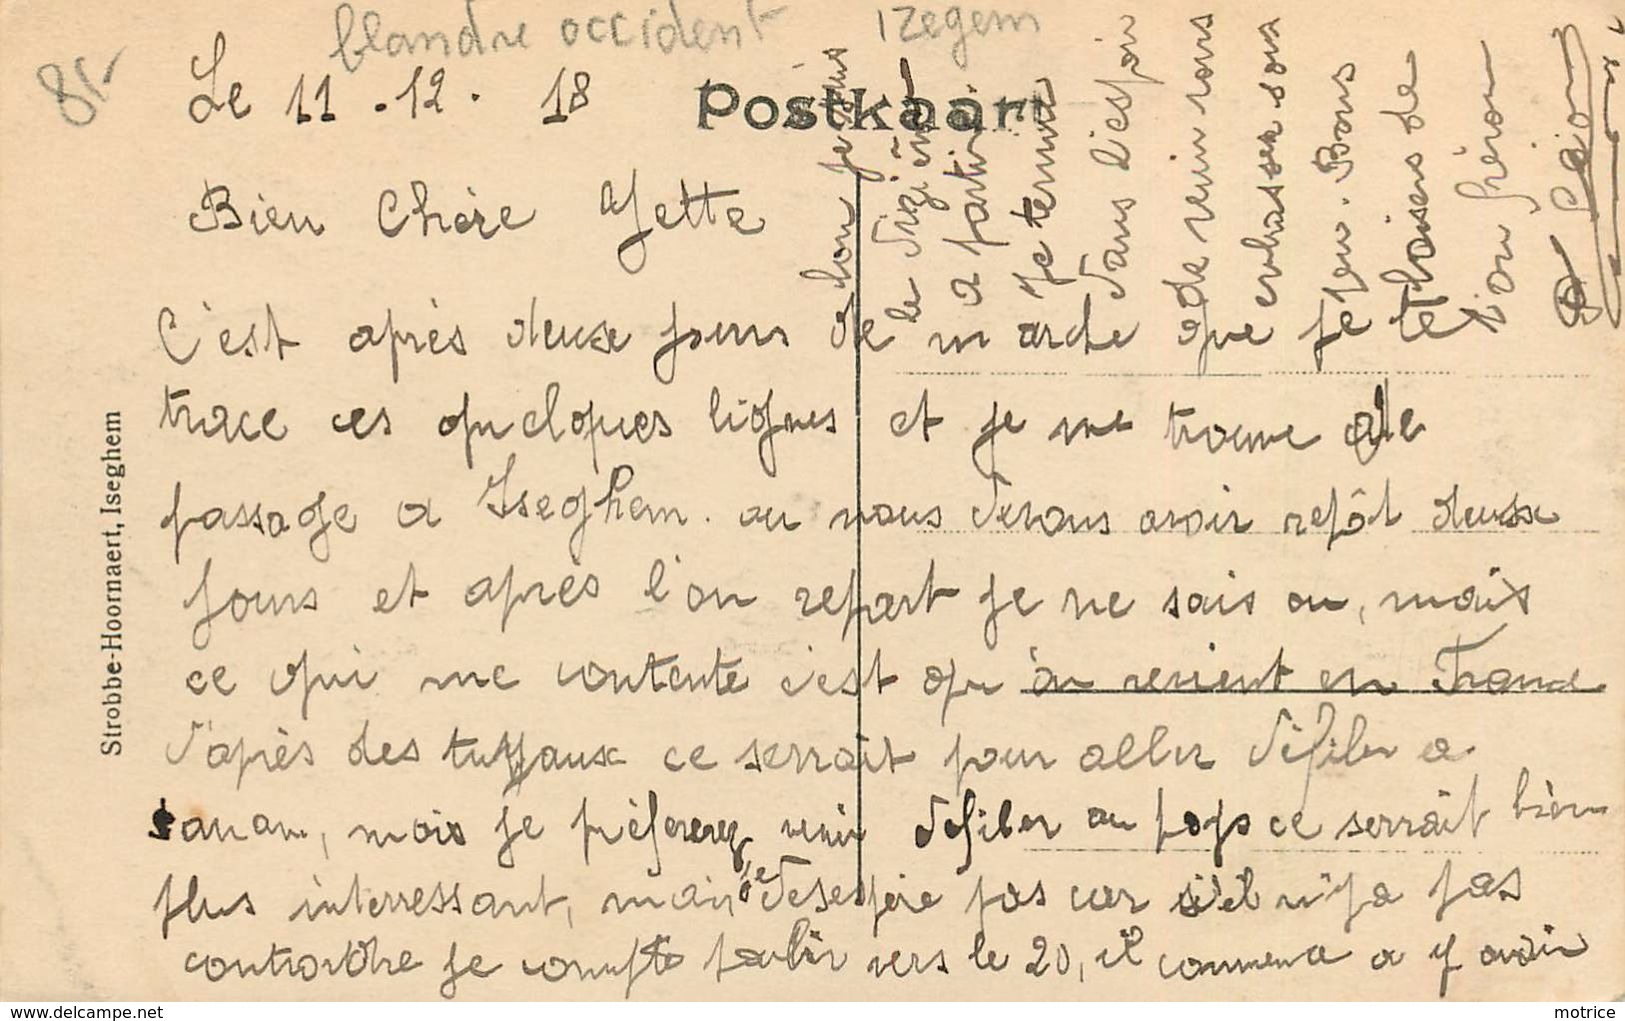 flandre occident Izegem
85
Le 11 - 12 - 18
Postkaart
Bien Chère Yette
C'est après deuxe jours de marche que je te
trace ces quelques lignes et je me trouve de
passage a Iseghem. ou nous devons avoir repôt deuxe
jours et après l'on repart je ne sais ou, mais
ce qui me contente c'est qu'on revient en France
d'après des tuyaux ce serrait pour aller défiler a
mais je prèfererez venir défiler au pays ce serrait bien
plus interressant, mais je desespère pas car s'il n'y a pas
contrordre je compte partir vers le 20, il commence a y avoir
bon je suis
le dixième
a partir
Je termine
dans l'espoir
de venir vous
embrasser sous
peu. Bons
baisers de
ton frèrou
Léon
Strobbe-Hoornaert, Iseghem
www.delcampe.net
motrice